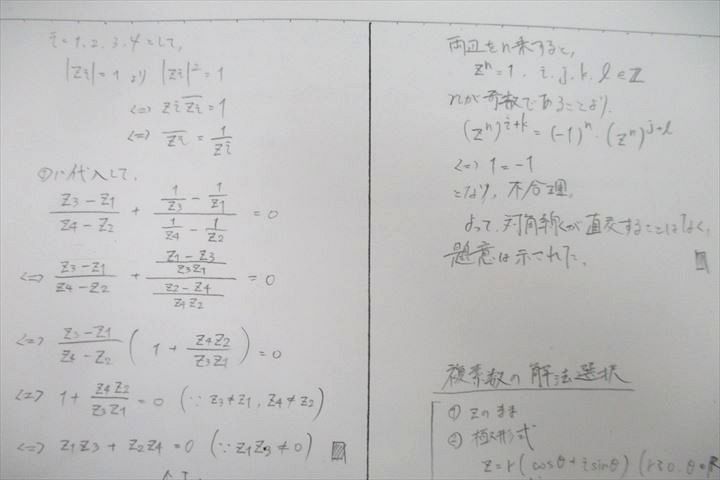 i=1.2.3.4として,
|zi|=1 より |zi|²=1
⇔ zi z̄i=1
⇔ z̄i = 1/zi
①に代入して.
(z3-z1)/(z4-z2) + (1/z3 - 1/z1)/(1/z4 - 1/z2) = 0
⇔ (z3-z1)/(z4-z2) + ((z1-z3)/(z3z1))/((z2-z4)/(z4z2)) = 0
⇔ (z3-z1)/(z4-z2) (1 + (z4z2)/(z3z1)) = 0
⇔ 1 + (z4z2)/(z3z1) = 0 (∵ z3≠z1, z4≠z2)
⇔ z1z3 + z2z4 = 0 (∵ z1z3≠0)
両辺をn乗すると,
zⁿ=1. i.j.k.l∈Z
nが奇数であることより.
(zⁿ)^(i+k) = (-1)ⁿ・(zⁿ)^(j+l)
⇔ 1=-1
となり, 不合理.
よって, 対角線が直交することはなく,
題意は示された.
複素数の解法選択
① zのまま
② 極形式
z=r(cosθ+isinθ) (r≧0, θ∈R